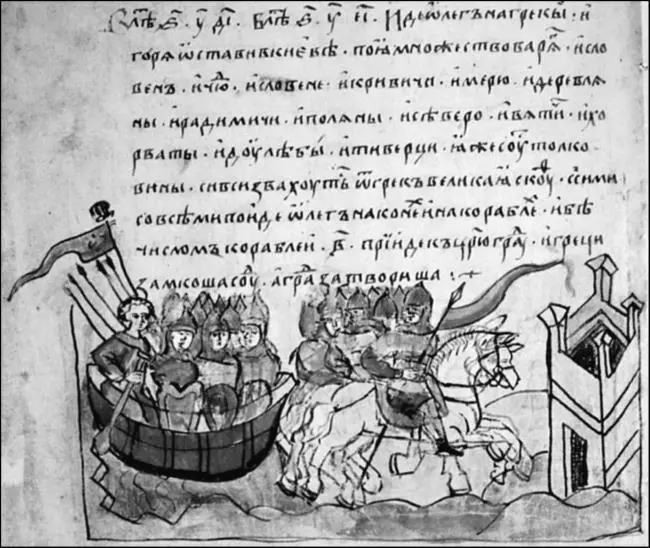 В лѣⷮ ҂ѕ҃ · у҃ · дı҃ · В лѣⷮ ҂ѕ҃ · у҃ · еı҃ · Иде ѡлегъ на грекы · и
горя ѡстави в киевѣ · поıа множество варѧ҃ · и сло
венъ · и чю҃ · и словене · и кривичи · и мерю · и деревля
ны · и радимичи · и поляны · и сѣверо · и вятı҃ · и хо
рваты · и доулѣбы · и тиверци · ıаже соу҃ толко
вины · си вси звахоуть ѿ грекъ великаıа скоу҃ · с сими
со всѣми поиде ѡлегъ на конеⷯ и на кораблеⷯ · и бѣ
числомъ кораблей · в҃ · прїиде к црюгра҃ · и греци
замкоша соу҃ · а гра҃ затвориша :·